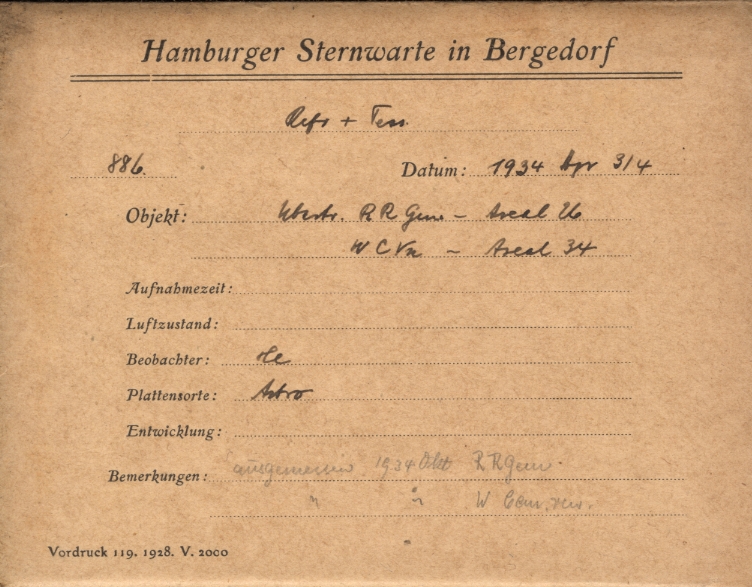 Hamburger Sternwarte in Bergedorf
Refr + Tess.
886. Datum: 1934 Apr 3/4
Objekt: Übertr. RR Gem – Areal 26
W C Vn – Areal 34
Aufnahmezeit:
Luftzustand:
Beobachter: He
Plattensorte: Astro
Entwicklung:
Bemerkungen: ausgemessen 1934 Okt RR Gem.
" " W Can. ven.
Vordruck 119. 1928. V. 2000